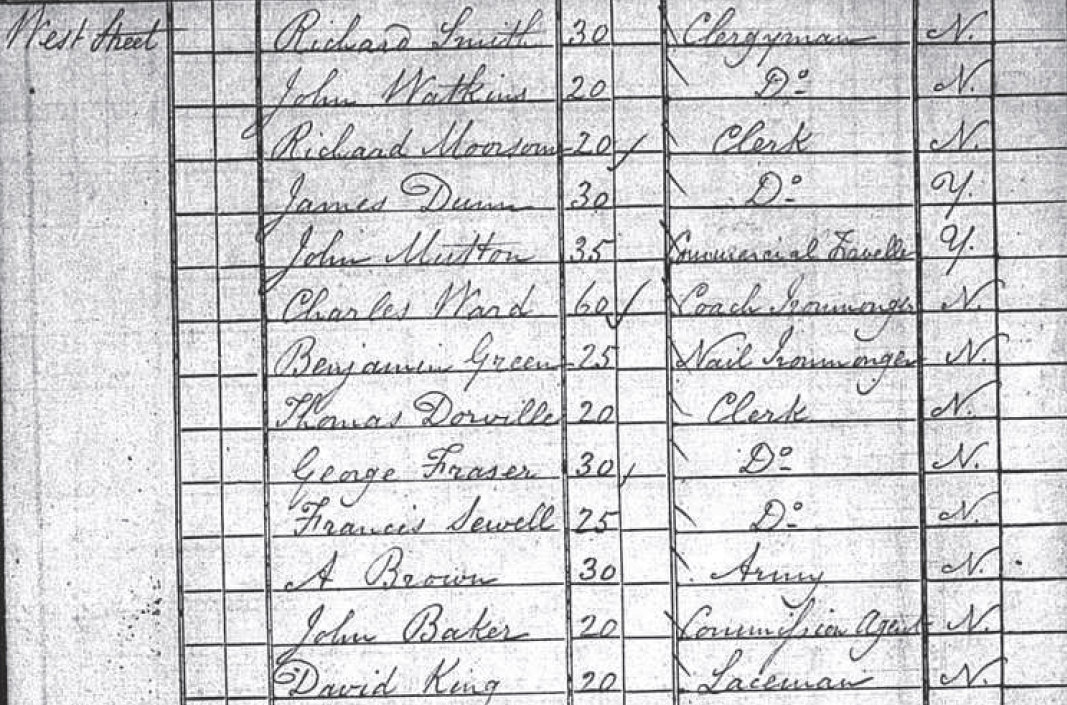 West Street Richard Smith 30 Clergyman N.
John Watkins 20 Do N.
Richard Moorsom 20 Clerk N.
James Dunn 30 Do Y.
John Mutton 35 Commercial Traveller Y.
Charles Ward 60 Coach Ironmonger N.
Benjamin Green 25 Nail Ironmonger N.
Thomas Dorville 20 Clerk N.
George Fraser 30 Do N.
Francis Sewell 25 Do N.
A Brown 30 Army N.
John Baker 20 Commission Agent N.
David King 20 Laceman N.